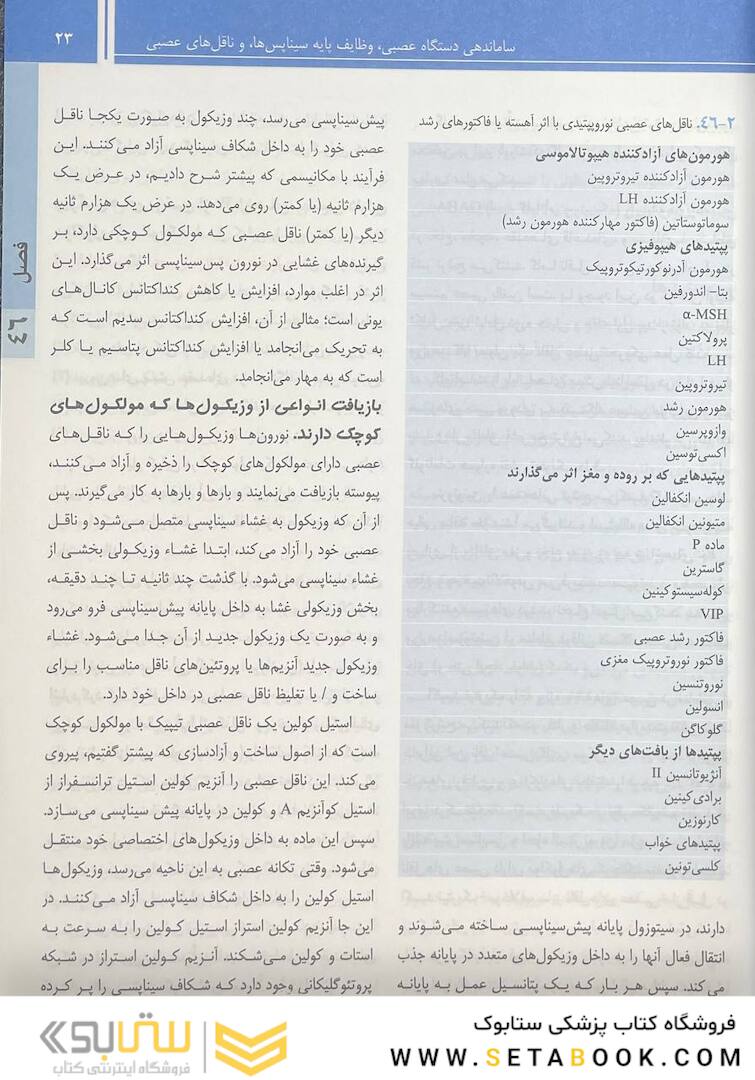 ساماندهی دستگاه عصبی، وظایف پایه سیناپس‌ها، و ناقل‌های عصبی
۲۳
فصل
۴۶
۲-۴۶. ناقل‌های عصبی نوروپپتیدی با اثر آهسته یا فاکتورهای رشد
هورمون‌های آزادکننده هیپوتالاموسی
هورمون آزادکننده تیروتروپین
هورمون آزادکننده LH
سوماتوستاتین (فاکتور مهارکننده هورمون رشد)
پپتیدهای هیپوفیزی
هورمون آدرنوکورتیکوتروپیک
بتا- اندورفین
α-MSH
پرولاکتین
LH
تیروتروپین
هورمون رشد
وازوپرسین
اکسی‌توسین
پپتیدهایی که بر روده و مغز اثر می‌گذارند
لوسین انکفالین
متیونین انکفالین
ماده P
گاسترین
کوله‌سیستوکینین
VIP
فاکتور رشد عصبی
فاکتور نوروتروپیک مغزی
نوروتنسین
انسولین
گلوکاگن
پپتیدها از بافت‌های دیگر
آنژیوتانسین II
برادی‌کینین
کارنوزین
پپتیدهای خواب
کلسی‌تونین
دارند، در سیتوزول پایانه پیش‌سیناپسی ساخته می‌شوند و
انتقال فعال آنها را به داخل وزیکول‌های متعدد در پایانه جذب
می‌کند. سپس هر بار که یک پتانسیل عمل به پایانه
پیش‌سیناپسی می‌رسد، چند وزیکول به صورت یکجا ناقل
عصبی خود را به داخل شکاف سیناپسی آزاد می‌کنند. این
فرآیند با مکانیسمی که پیشتر شرح دادیم، در عرض یک
هزارم ثانیه (یا کمتر) روی می‌دهد. در عرض یک هزارم ثانیه
دیگر (یا کمتر) ناقل عصبی که مولکول کوچکی دارد، بر
گیرنده‌های غشایی در نورون پس‌سیناپسی اثر می‌گذارد. این
اثر در اغلب موارد، افزایش یا کاهش کنداکتانس کانال‌های
یونی است؛ مثالی از آن، افزایش کنداکتانس سدیم است که
به تحریک می‌انجامد یا افزایش کنداکتانس پتاسیم یا کلر
است که به مهار می‌انجامد.
بازیافت انواعی از وزیکول‌ها که مولکول‌های
کوچک دارند. نورون‌ها وزیکول‌هایی را که ناقل‌های
عصبی دارای مولکول‌های کوچک را ذخیره و آزاد می‌کنند،
پیوسته بازیافت می‌نمایند و بارها و بارها به کار می‌گیرند. پس
از آن که وزیکول به غشاء سیناپسی متصل می‌شود و ناقل
عصبی خود را آزاد می‌کند، ابتدا غشاء وزیکولی بخشی از
غشاء سیناپسی می‌شود. با گذشت چند ثانیه تا چند دقیقه،
بخش وزیکولی غشا به داخل پایانه پیش‌سیناپسی فرو می‌رود
و به صورت یک وزیکول جدید از آن جدا می‌شود. غشاء
وزیکول جدید آنزیم‌ها یا پروتئین‌های ناقل مناسب را برای
ساخت و / یا تغلیظ ناقل عصبی در داخل خود دارد.
استیل کولین یک ناقل عصبی تیپیک با مولکول کوچک
است که از اصول ساخت و آزادسازی که پیشتر گفتیم، پیروی
می‌کند. این ناقل عصبی را آنزیم کولین استیل ترانسفراز از
استیل کوآنزیم A و کولین در پایانه پیش سیناپسی می‌سازد.
سپس این ماده به داخل وزیکول‌های اختصاصی خود منتقل
می‌شود. وقتی تکانه عصبی به این ناحیه می‌رسد، وزیکول‌ها
استیل کولین را به داخل شکاف سیناپسی آزاد می‌کنند. در
این جا آنزیم کولین استراز استیل کولین را به سرعت به
استات و کولین می‌شکند. آنزیم کولین استراز در شبکه
پروتئوگلیکانی وجود دارد که شکاف سیناپسی را پر کرده
فروشگاه کتاب پزشکی ستابوک
WWW.SETABOOK.COM
ستابوک
فروشگاه اینترنتی کتاب